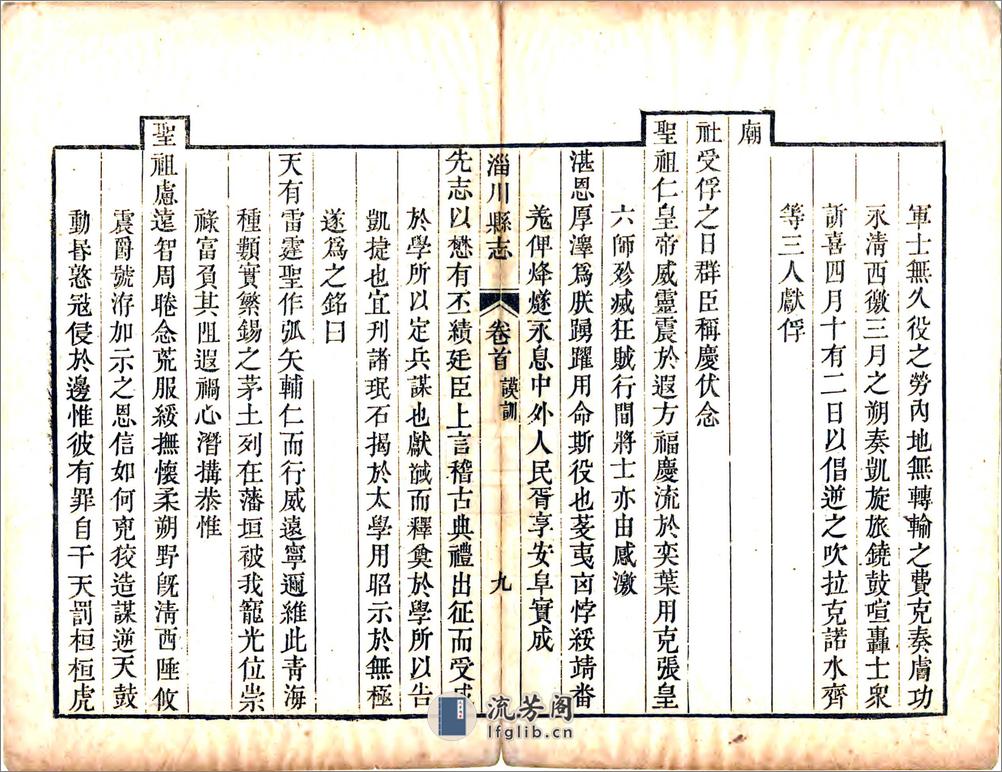 軍士無久役之勞內地無轉輸之費克奏膚功
永清西徼三月之朔奏凱旋旅鐃鼓喧轟士衆
訢喜四月十有二日以倡逆之吹拉克諾水齊
等三人獻俘
廟
社受俘之日群臣稱慶伏念
聖祖仁皇帝威靈震於遐方福慶流於奕葉用克張皇
六師殄滅狂賊行間將士亦由感激
湛恩厚澤爲朕踴躍用命斯役也芟夷凶悖綏靖番
羗俾烽燧永息中外人民胥享安阜實成
淄川縣志
卷首
謨訓
九
先志以懋有丕績廷臣上言稽古典禮出征而受成
於學所以定兵謀也獻馘而釋奠於學所以告
凱捷也宜刊諸珉石揭於太學用昭示於無極
遂爲之銘曰
天有雷霆聖作弧矢輔仁而行威遠寧邇維此青海
種類實繁錫之茅土列在藩垣被我寵光位崇
祿富負其阻遐禍心潛搆恭惟
聖祖慮遠智周睠念荒服綏撫懷柔朔野旣清西陲攸
震爵號洊加示之恩信如何兇狡造謀逆天鼓
動昬憝寇侵於邊惟彼有罪自干天罰桓桓虎
流芳阁
lfglib.cn